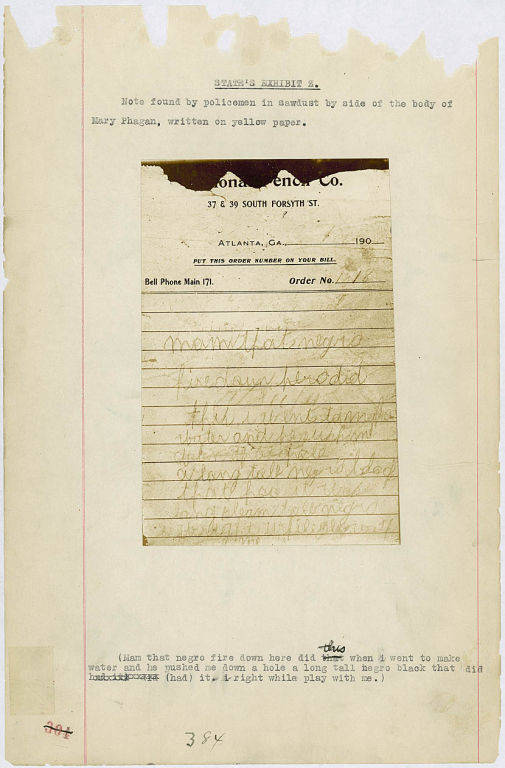 STATE'S EXHIBIT Z.
Note found by policemen in sawdust by side of the body of
Mary Phagan, written on yellow paper.
Penc Co.
37 & 39 SOUTH FORSYTH ST.
ATLANTA, GA., 190
PUT THIS ORDER NUMBER ON YOUR BILL.
Bell Phone Main 171. Order No.
mam that negro
fire down here did
this i went to make
water and he push me
down
a long tall negro black
that
long tall negro
i right while play with
me
this
(Mam that negro fire down here did that when i went to make
water and he pushed me down a hole a long tall negro black that did
(had) it. i right while play with me.)
384